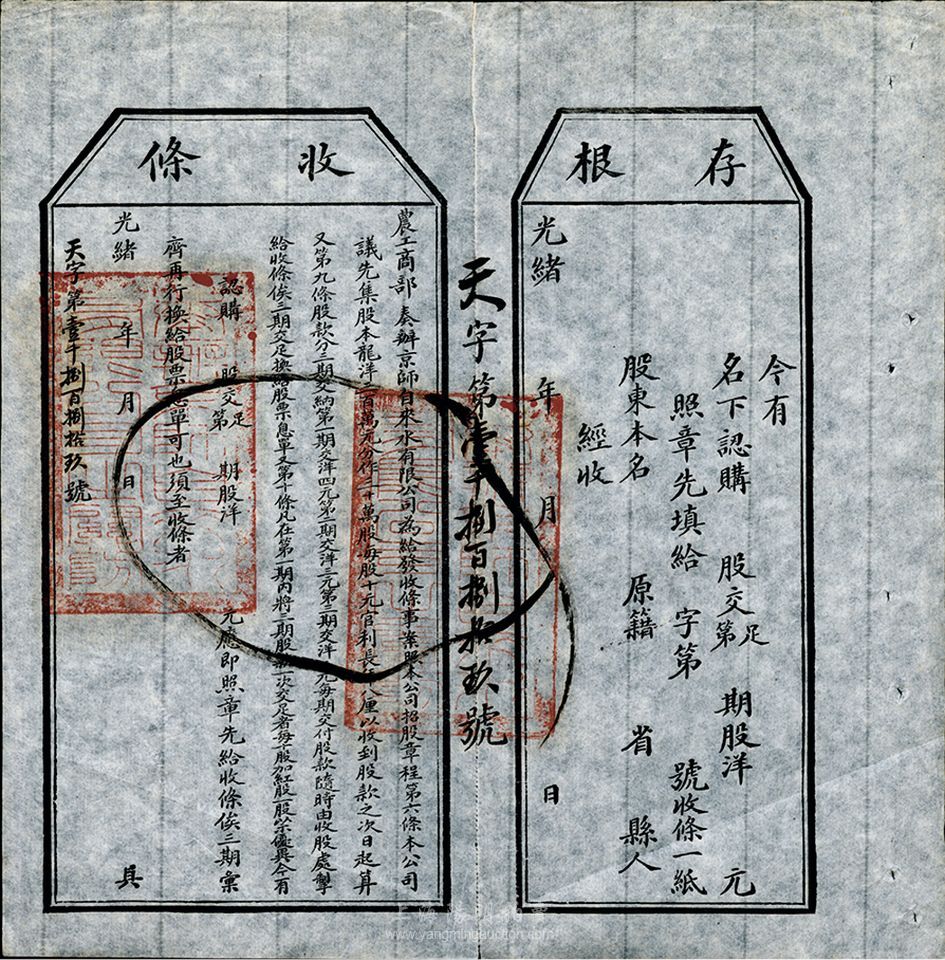 存根
今有
名下認購 股交足第 期股洋 元
照章先填給 字第 號收條一紙
股東本名 原籍 省 縣人
經收
光緒 年 月 日
天字第壹千捌百捌拾玖號
收條
農工商部奏辦京師自來水有限公司為給發收條事案照本公司招股章程第六條本公司
議先集股本龍洋三百萬元分作三十萬股每股十元官利長年八厘以收到股款之次日起算
又第九條股款分三期交納第一期交洋四元第二期交洋三元第三期交洋三元每期交付股款隨時由收股處掣
給收條俟三期交足換給股票息單又第十條凡在第一期內將三期股款一次交足者每十股加紅股一股以示優異今有
認購 股交足第 期股洋 元應即照章先給收條俟三期彙
齊再行換給股票息單可也須至收條者
光緒 年 月 日 具
天字第壹千捌百捌拾玖號
www.yangmingauction.com